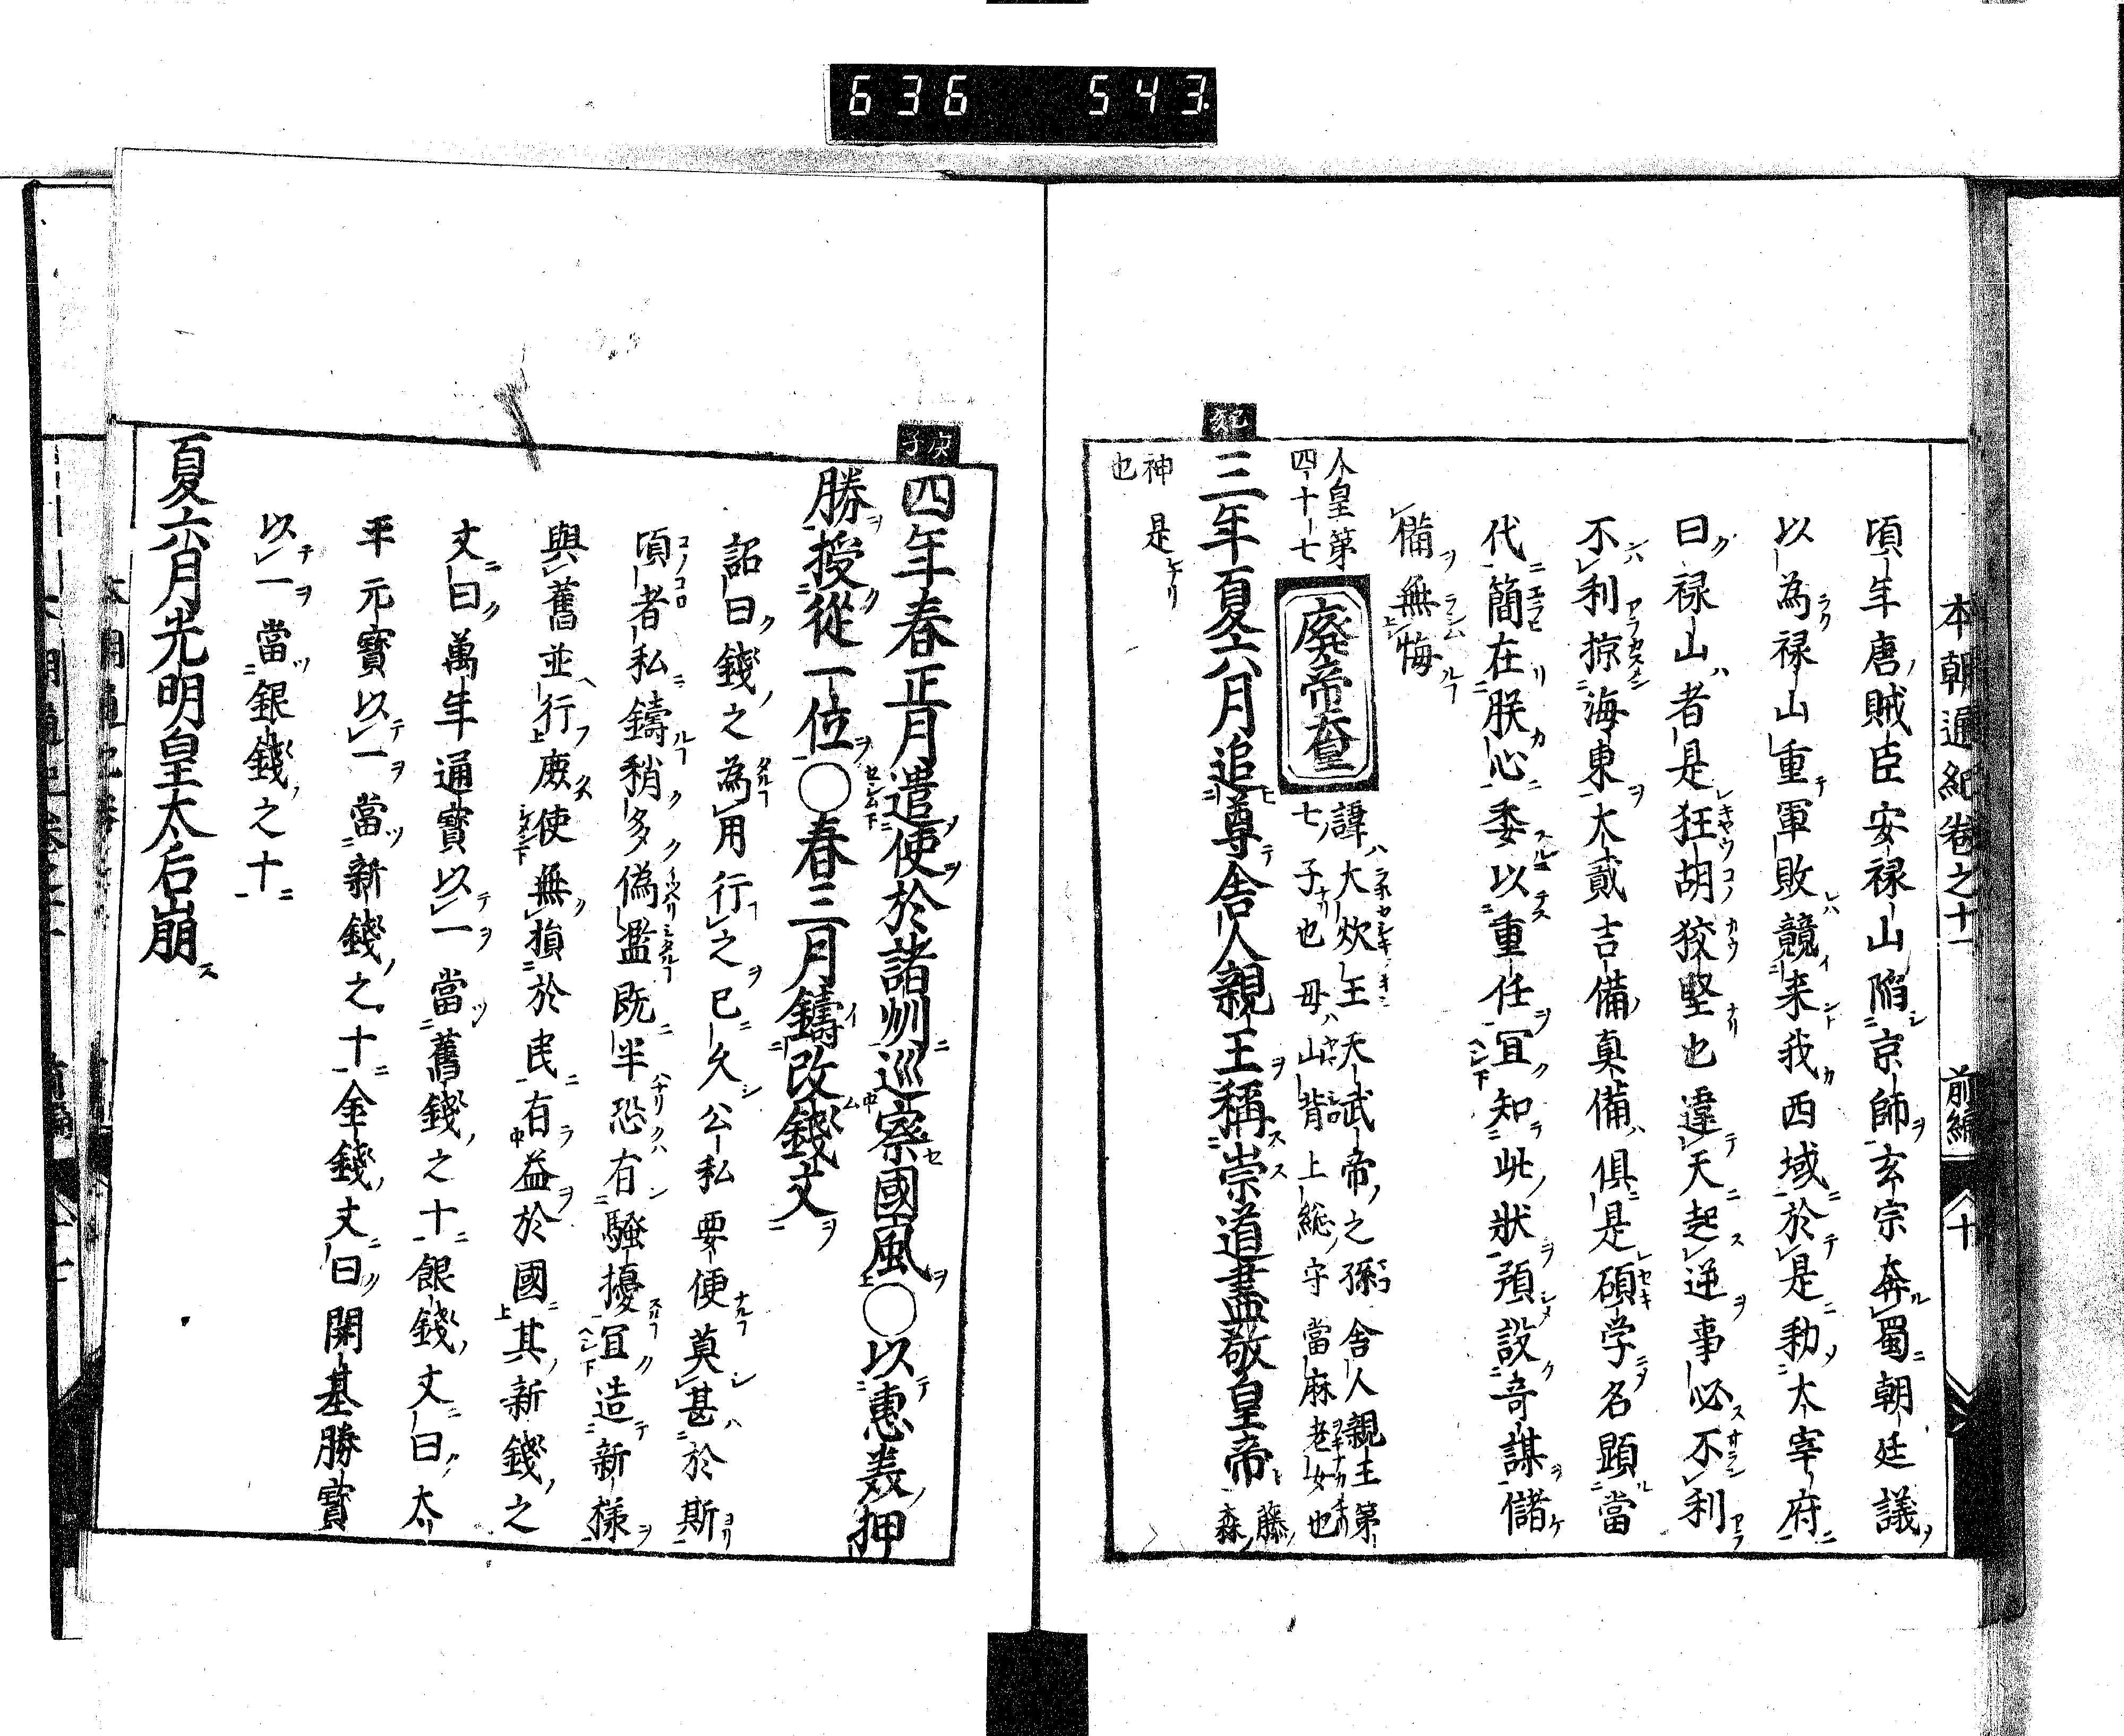 636 543
本朝通紀卷之十一 前編 十
頃年唐賊臣安禄山陷京師玄宗奔蜀朝廷議
以為禄山重軍敗競来我西域於是勅太宰府
曰禄山者是狂胡狡堅也違天起逆事必不利
不利掠海東大貳吉備真備俱是碩学名顕當
代簡在朕心委以重任宜知此狀預設奇謀儲
備無悔
人皇第
四十七
廢帝天皇
諱大炊王天武帝之孫舎人親王第
七子也母山背上総守當麻老女也
己亥
三年夏六月追尊舎人親王稱崇道盡敬皇帝
藤
森
神
也
是
庚子
四年春正月遣使於諸州巡察國風○以惠美押
勝授從一位○春三月鑄改錢文
詔曰錢之為用行之已久公私要便莫甚於斯
頃者私鑄稍多偽濫既半恐有騷擾宜造新様
與舊並行庶使無損於民有益於國其新錢之
文曰萬年通寳以一當舊錢之十銀錢文曰太
平元寳以一當新錢之十金錢文曰開基勝寳
以一當銀錢之十
夏六月光明皇太后崩